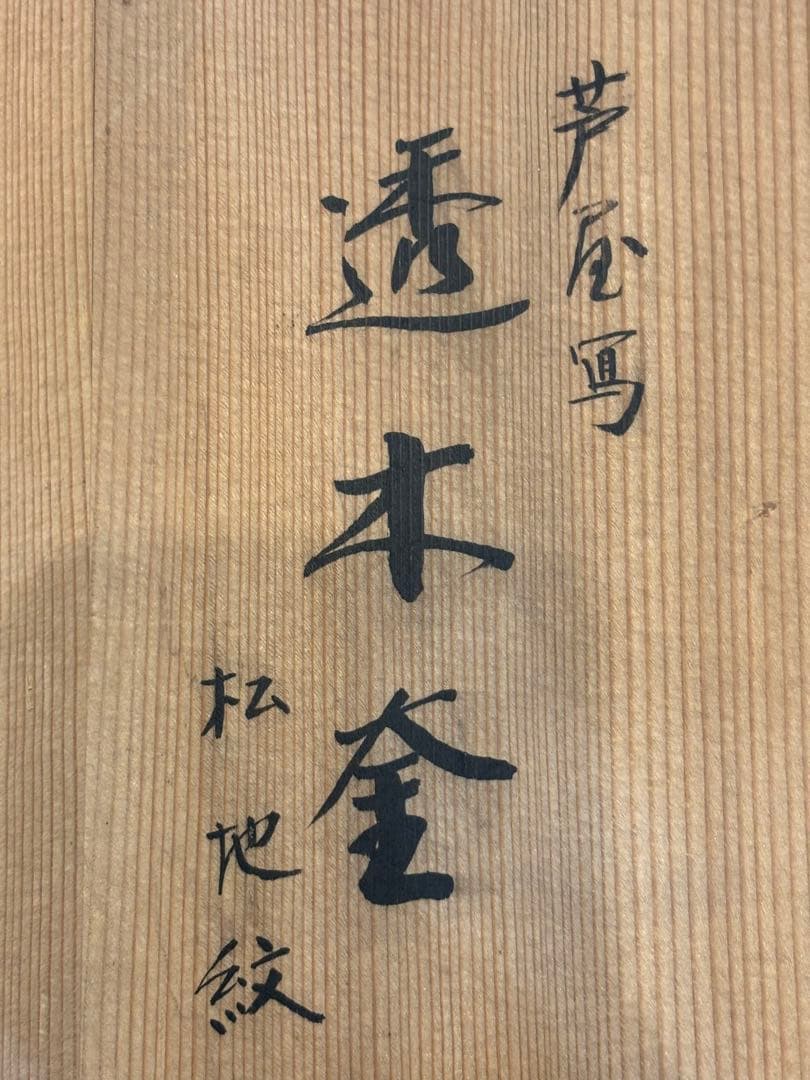 芦屋写
透木釜
松地紋